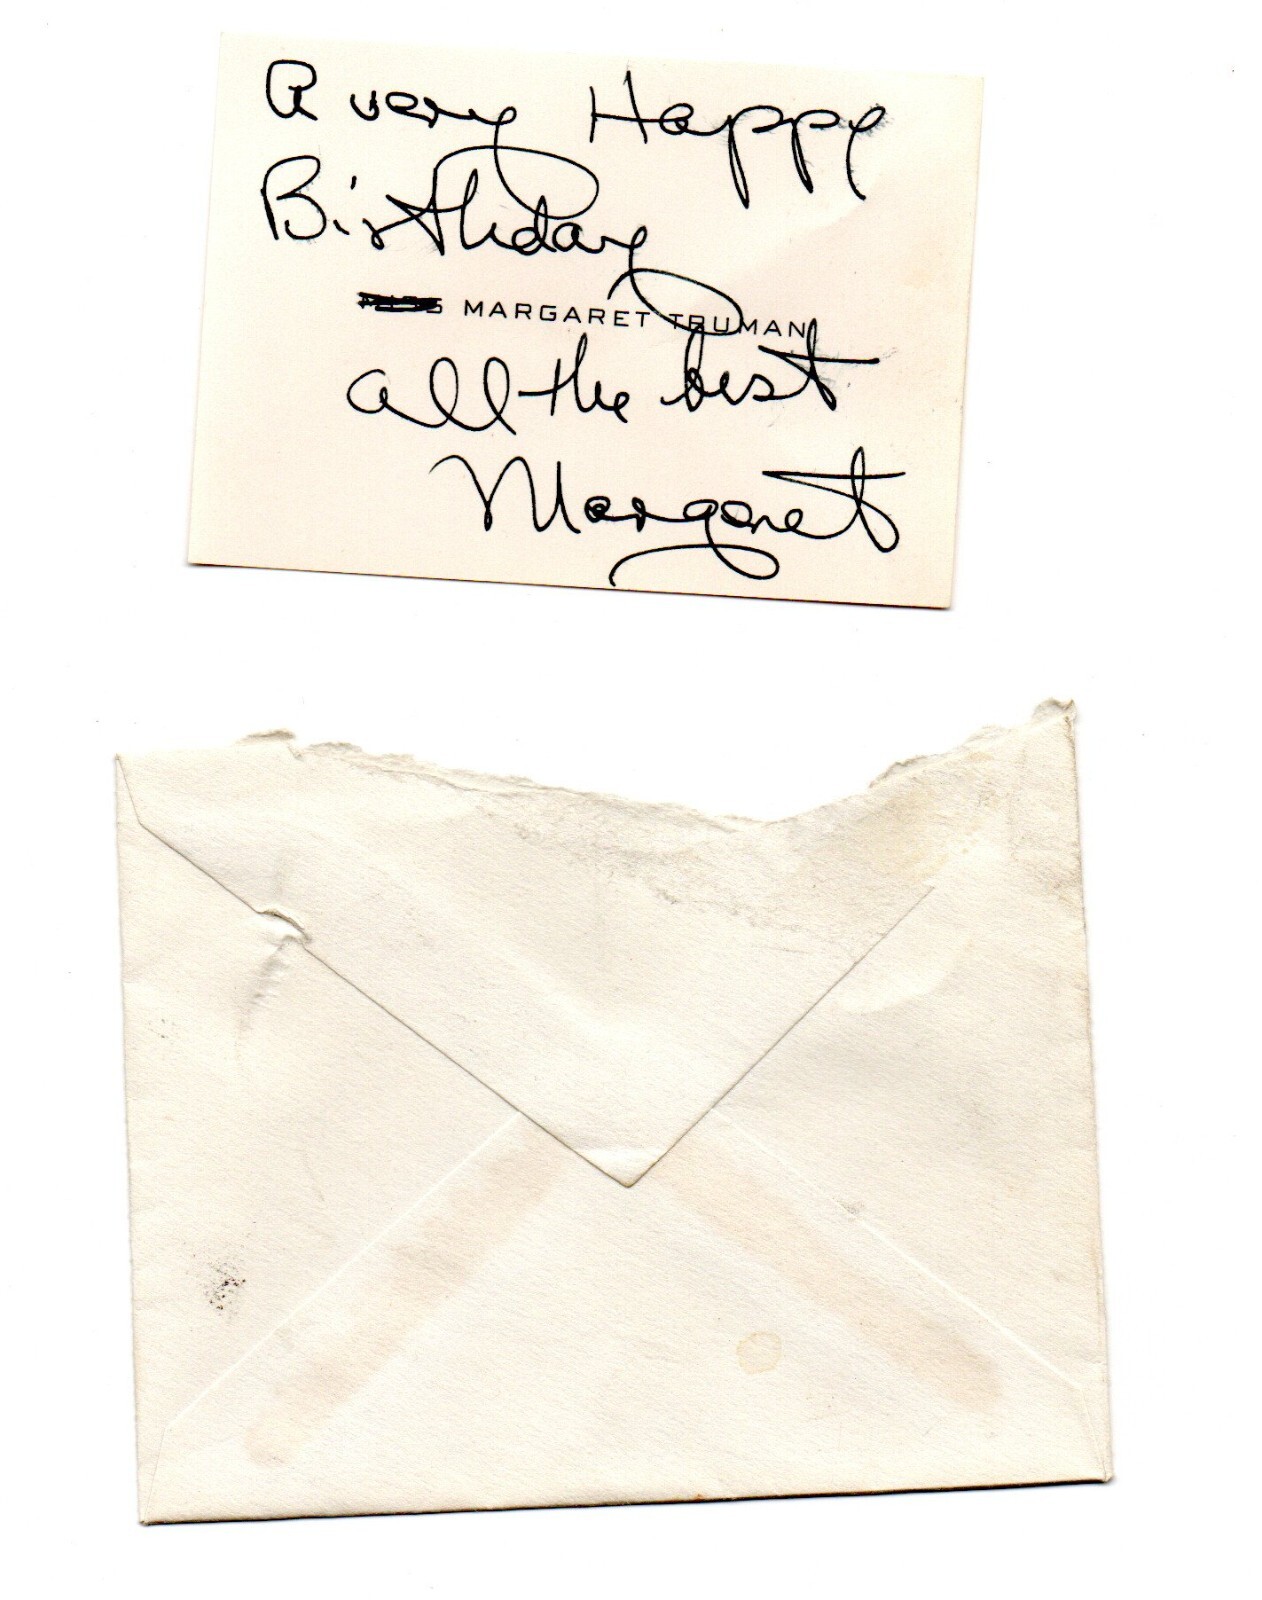 A very Happy
Birthday
MARGARET TRUMAN
all the best
Margaret